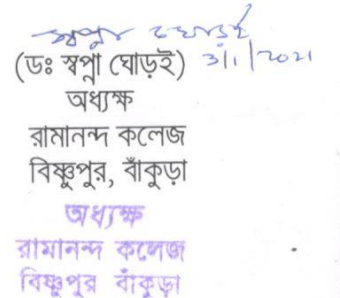 স্বপ্না ঘোড়ই
3/1/2021
(ডঃ স্বপ্না ঘোড়ই)
অধ্যক্ষ
রামানন্দ কলেজ
বিষ্ণুপুর, বাঁকুড়া
অধ্যক্ষ
রামানন্দ কলেজ
বিষ্ণুপুর বাঁকুড়া